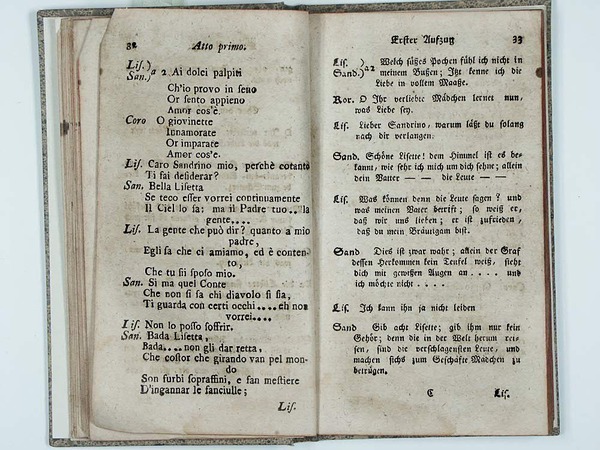 32 Atto primo.
Lis.)
San.) a 2 Ai dolci palpiti
Ch'io provo in seno
Or sento appieno
Amor cos'è.
Coro O giovinette
Innamorate
Or imparate
Amor cos'e.
Lis. Caro Sandrino mio, perchè cotanto
Ti fai desiderar?
San. Bella Lisetta
Se teco esser vorrei continuamente
Il Ciel lo sa: ma il Padre tuo.. la
gente....
Lis. La gente che può dir? quanto a mio
padre,
Egli sa che ci amiamo, ed è conten-
to,
Che tu sii sposo mio.
San. Sì ma quel Conte
Che non si sa chi diavolo si sia,
Ti guarda con certi occhi....eh non
vorrei....
Lis. Non lo posso soffrir.
San. Bada Lisetta,
Bada....non gli dar retta,
Che costor che girando van pel mon-
do
Son furbi sopraffini, e fan mestiere
D'ingannar le fanciulle;
Lis.
Erster Aufzug 33
Lis. ) a 2 Welch süßes Pochen fühl ich nicht in
Sand.) meinem Bußen; Itzt kenne ich die
Liebe in vollem Maaße.
Kor. O Ihr verliebte Mädchen lernet nun,
was Liebe sey.
Lis. Lieber Sandrino, warum läßt du solang
nach dir verlangen.
Sand. Schöne Lisette! dem Himmel ist es be-
kannt, wie sehr ich mich um dich sehne; allein
dein Vatter — — die Leute — —
Lis. Was können denn die Leute sagen? und
was meinen Vater betrift; so weiß er,
daß wir uns lieben; er ist zufrieden,
daß du mein Bräutigam bist.
Sand Dies ist zwar wahr; allein der Graf
dessen Herkommen kein Teufel weiß, sieht
dich mit gewißen Augen an.... und
ich möchte nicht....
Lis. Ich kann ihn ja nicht leiden
Sand Gib acht Lisette; gib ihm nur kein
Gehör; denn die in der Welt herum rei-
sen, sind die verschlagensten Leute, und
machen sichs zum Geschäfte Mädchen zu
betrügen.
C Lis.